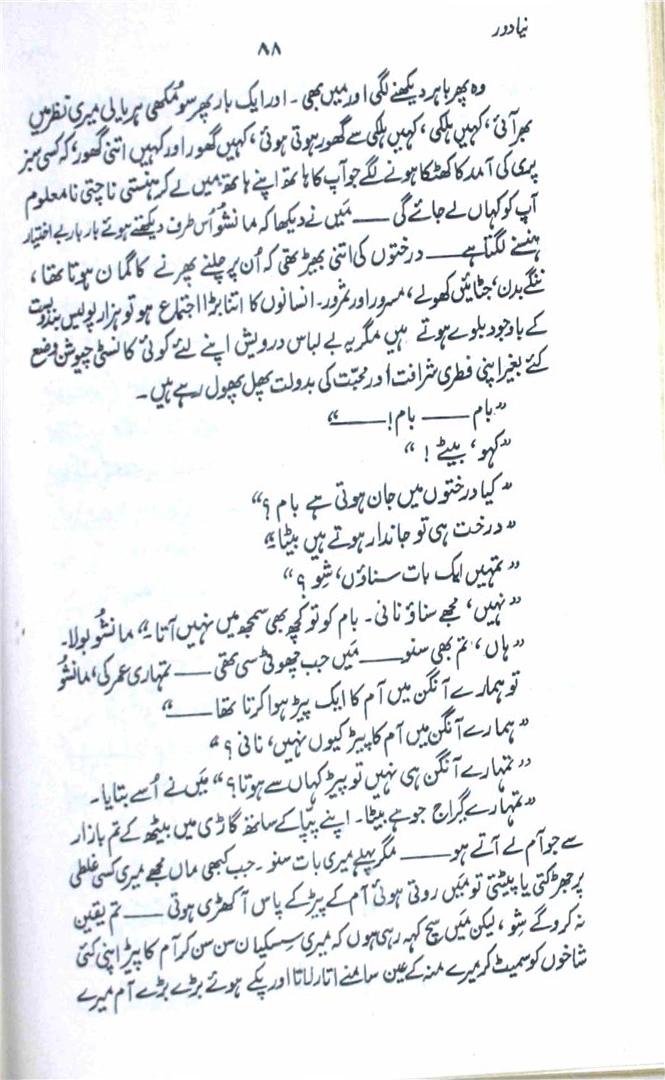 نیا دور
۸۸
وہ پھر باہر دیکھنے لگی اور میں بھی ۔ اور ایک بار پھر سو مُکھی ہریالی میری نظر میں
بھر آئی ، کہیں ہلکی ، کہیں ہلکی سے گھور ہوتی ہوئی ، کہیں گھور اور کہیں اتنی گھور ، کہ کسی سبز
پری کی آمد کا کھٹکا ہونے لگے جو آپ کا ہاتھ اپنے ہاتھ میں لے کر ہنستی ناچتی نامعلوم
آپ کو کہاں لے جائے گی ــــ مَیں نے دیکھا کہ مانشُو اُس طرف دیکھتے ہوئے بار بار بے اختیار
ہنسنے لگتا ہے ــــ درختوں کی اتنی بھیڑ تھی کہ اُن پر چلنے پھرنے کا گمان ہوتا تھا ،
ننگے بدن ، جٹائیں کھولے ، مسرور اور ثمرور ۔ انسانوں کا اتنا بڑا اجتماع ہو تو ہزار پولیس بندوبست
کے باوجود بلوے ہوتے ہیں مگر یہ بے لباس درویش اپنے لئے کوئی کانسٹی چیوشن وضع
کئے بغیر اپنی فطری شرافت اور محبّت کی بدولت پھل پھول رہے ہیں ۔
”بام ــــ بام ! ــــ“
”کہو ، بیٹے ! “
”کیا درختوں میں جان ہوتی ہے بام ؟“
”درخت ہی تو جاندار ہوتے ہیں بیٹا ۔“
”تمہیں ایک بات سناؤں ، شِو ؟“
”نہیں ، مجھے سناؤ نانی ۔ بام کو تو کُچھ بھی سمجھ میں نہیں آتا ۔“ مانشُو بولا ۔
”ہاں ، تم بھی سنو ــــ مَیں جب چھوٹی سی تھی ــــ تمہاری عمر کی ، مانشُو
تو ہمارے آنگن میں آم کا ایک پیڑ ہوا کرتا تھا ــــ“
”ہمارے آنگن میں آم کا پیڑ کیوں نہیں ، نانی ؟“
”تمہارے آنگن ہی نہیں تو پیڑ کہاں سے ہوتا ؟“ مَیں نے اُسے بتایا ۔
”تمہارے گراج جو ہے بیٹا ۔ اپنے پپّا کے ساتھ گاڑی میں بیٹھ کے تم بازار
سے جو آم لے آتے ہو ــــ مگر پہلے میری بات سنو ۔ جب کبھی ماں مجھے میری کسی غلطی
پر جھڑکتی یا پیٹتی تو مَیں روتی ہوئی آم کے پیڑ کے پاس آ کھڑی ہوتی ــــ تم یقین
نہ کرو گے شِو ، لیکن مَیں سچ کہہ رہی ہوں کہ میری سسکیان سن سن کر آم کا پیڑ اپنی کئی
شاخوں کو سمیٹ کر میرے منہ کے عین سامنے اتار لاتا اور پکے ہوئے بڑے بڑے آم میرے